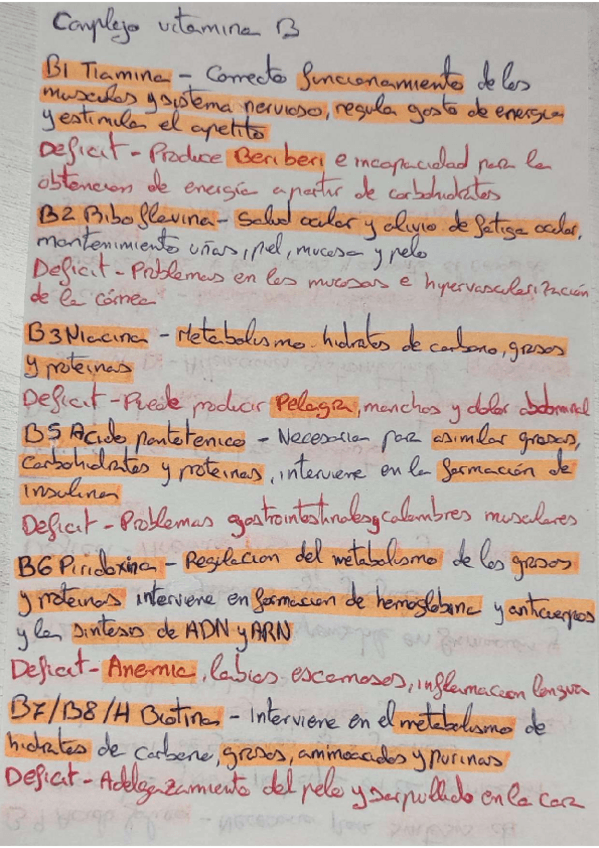 Complejo vitamina B
B1 Tiamina - Correcto funcionamiento de los
musculos y sistema nervioso, regula gasto de energia
y estimula el apetito
Deficit - Produce Beriberi e incapacidad para la
obtencion de energia a partir de carbohidratos
B2 Riboflavina - Salud ocular y alivio de fatiga ocular,
mantenimiento uñas, piel, mucosa y pelo
Deficit - Problemas en las mucosas e hypervascularización
de la córnea
B3 Niacina - Metabolismo hidratos de carbono, grasas
y proteinas
Deficit - Puede producir Pelagra, manchas y dolor abdominal
B5 Acido pantotenico - Necesaria para asimilar grasas,
carbohidratos y proteinas, interviene en la formación de
insulina
Deficit - Problemas gastrointestinales y calambres musculares
B6 Piridoxina - Regulacion del metabolismo de las grasas
y proteinas interviene en formacion de hemoglobina y anticuerpos
y la sintesis de ADN y ARN
Deficit - Anemia, labios escamosos, inflamacion lengua
B7/B8/H Biotina - Interviene en el metabolismo de
hidratos de carbono, grasas, aminoacidos y purinas
Deficit - Adelgazamiento del pelo y sarpullido en la cara